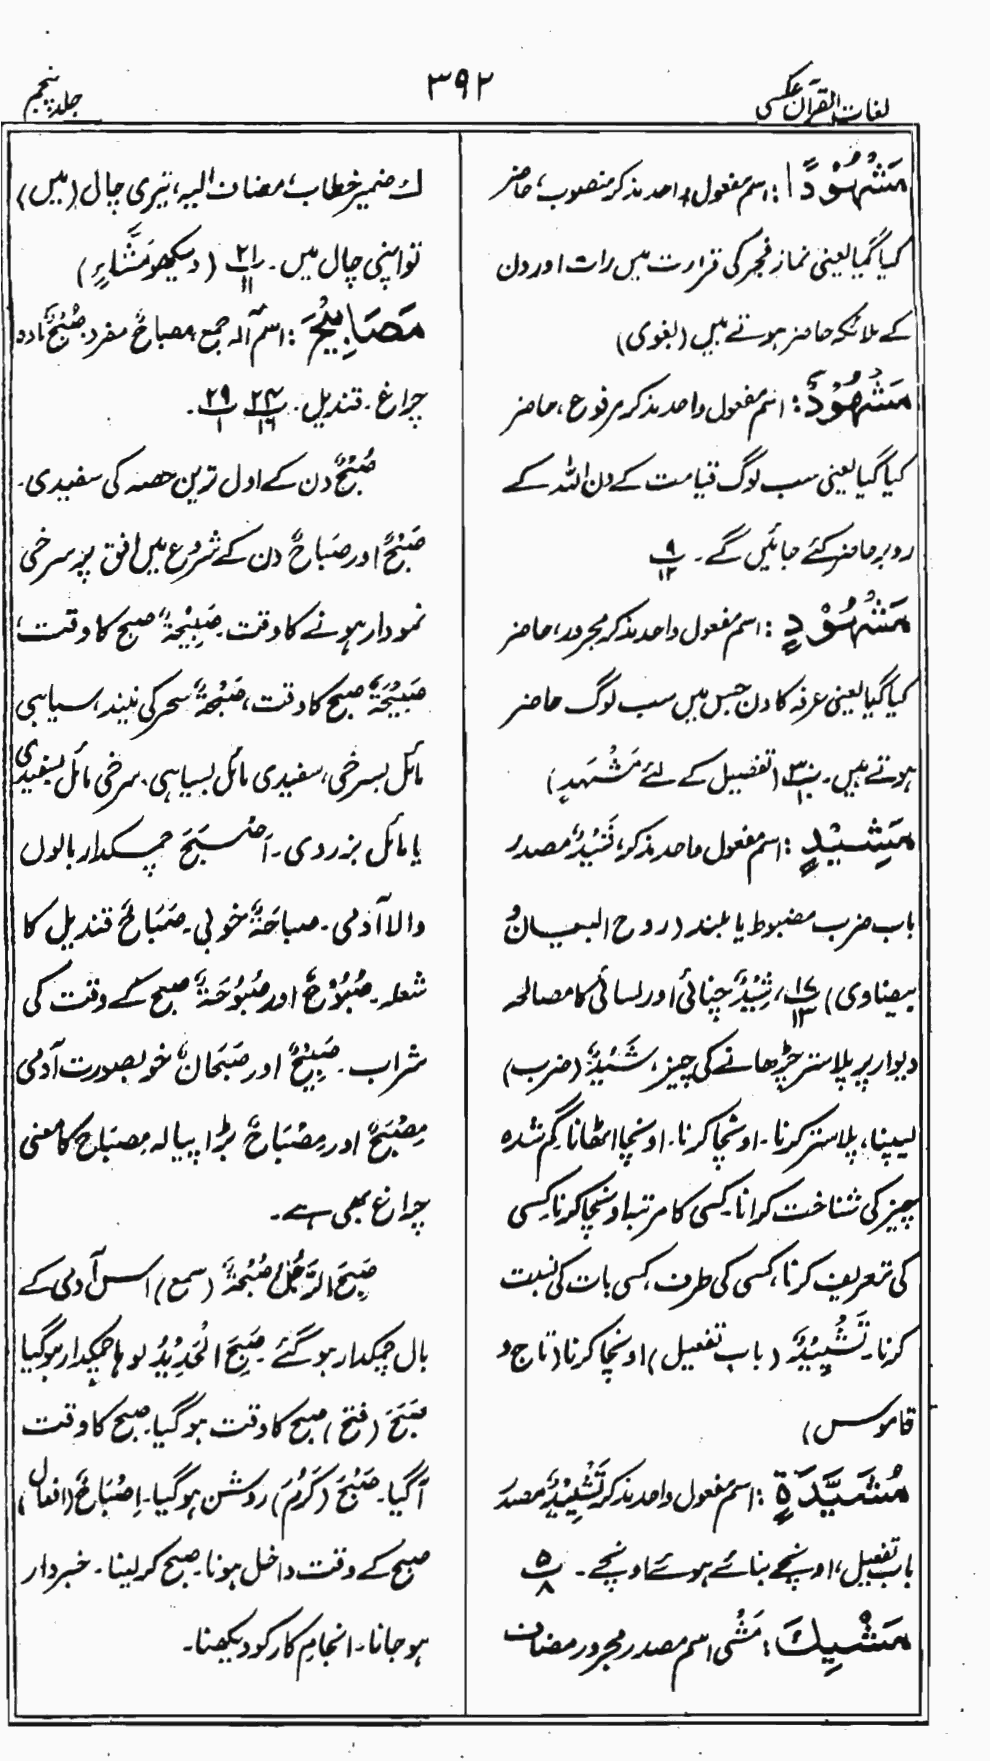 لغات القرآن عکسی
۳۹۲
جلد پنجم
مَشْهُوْدًا: اسم مفعول واحد مذکر منصوب، حاضر
کیا گیا یعنی نماز فجر کی قرارت میں رات اور دن
کے ملائکہ حاضر ہوتے ہیں (بغوی)
مَشْهُوْدٌ: اسم مفعول واحد مذکر مرفوع، حاضر
کیا گیا یعنی سب لوگ قیامت کے دن اللہ کے
روبرو حاضر کئے جائیں گے۔ پ۱۲ ۹
مَشْهُوْدٍ: اسم مفعول واحد مذکر مجرور، حاضر
کیا گیا یعنی عرفہ کا دن جس میں سب لوگ حاضر
ہوتے ہیں۔ پ۳۰ ۱۰ (تفصیل کے لئے مَشْهَدِ)
مَشِيْدٍ: اسم مفعول واحد مذکر، شَيْدٌ مصدر
باب ضرب مضبوط یا بلند (روح البیان و
بیضاوی) پ۱۷ ۱۳، شِيْدٌ چنائی اور لسائی کا مصالحہ
دیوار پر پلاستر چڑھانے کی چیز، شَيْدٌ (ضرب)
لیپنا، پلاستر کرنا۔ اونچا کرنا۔ اونچا اٹھانا گم شدہ
چیز کی شناخت کرانا۔ کسی کا مرتبہ اونچا کرنا کسی
کی تعریف کرنا، کسی کی طرف کسی بات کی نسبت
کرنا۔ تَشْيِيْدٌ (باب تفعیل) اونچا کرنا (تاج و
قاموس)
مُشَيَّدَةٍ: اسم مفعول واحد مذکر تَشْيِيْدٌ مصدر
باب تفعیل، اونچے بنائے ہوئے اونچے۔ پ۵ ۸
مَشْيِكَ: مَشْی اسم مصدر مجرور مضاف
ك ضمیر خطاب، مضاف الیہ، تیری چال (میں)
تو اپنی چال میں۔ پ۲۱ ۱۱ (دیکھو مَشَّاءٍ)
مَصَابِيْحَ: اسم آلہ جمع مصباحٌ مفرد صُبْحٌ مادہ
چراغ۔ قندیل۔ پ۲۴ ۱۶ پ۲۹ ۱۔
صُبْحٌ دن کے اول ترین حصہ کی سفیدی۔
صَبْحٌ اور صَبَاحٌ دن کے شروع میں افق پر سرخی
نمودار ہونے کا وقت۔ صَبِيْحَةٌ صبح کا وقت،
صَبِيْحَةٌ صبح کا وقت، صُبْحَةٌ سحر کی نیند، سیاہی
مائل بسرخی، سفیدی مائل بسیاہی، سرخی مائل بسفیدی
یا مائل بزردی۔ اَصْبَحَ چمکدار بالوں
والا آدمی۔ صباحَةٌ خوبی۔ صَبَاحٌ قندیل کا
شعلہ۔ صَبُوْحٌ اور صَبُوْحَةٌ صبح کے وقت کی
شراب۔ صَبِيْحٌ اور صَبْحَانُ خوبصورت آدمی
مِصْبَحٌ اور مِصْبَاحٌ بڑا پیالہ مِصْبَاح کا معنی
چراغ بھی ہے۔
صَبِحَ الرَّجُلُ صُبْحَةً (سمع) اس آدمی کے
بال چمکدار ہو گئے۔ صَبِحَ الْحَدِيْدُ لوہا چمکدار ہو گیا
صَبَحَ (فتح) صبح کا وقت ہو گیا۔ صبح کا وقت
آ گیا۔ صَبُحَ (کَرُمَ) روشن ہو گیا۔ اِصْبَاحٌ (افعال)
صبح کے وقت داخل ہونا۔ صبح کر لینا۔ خبردار
ہو جانا۔ انجام کار کو دیکھنا۔